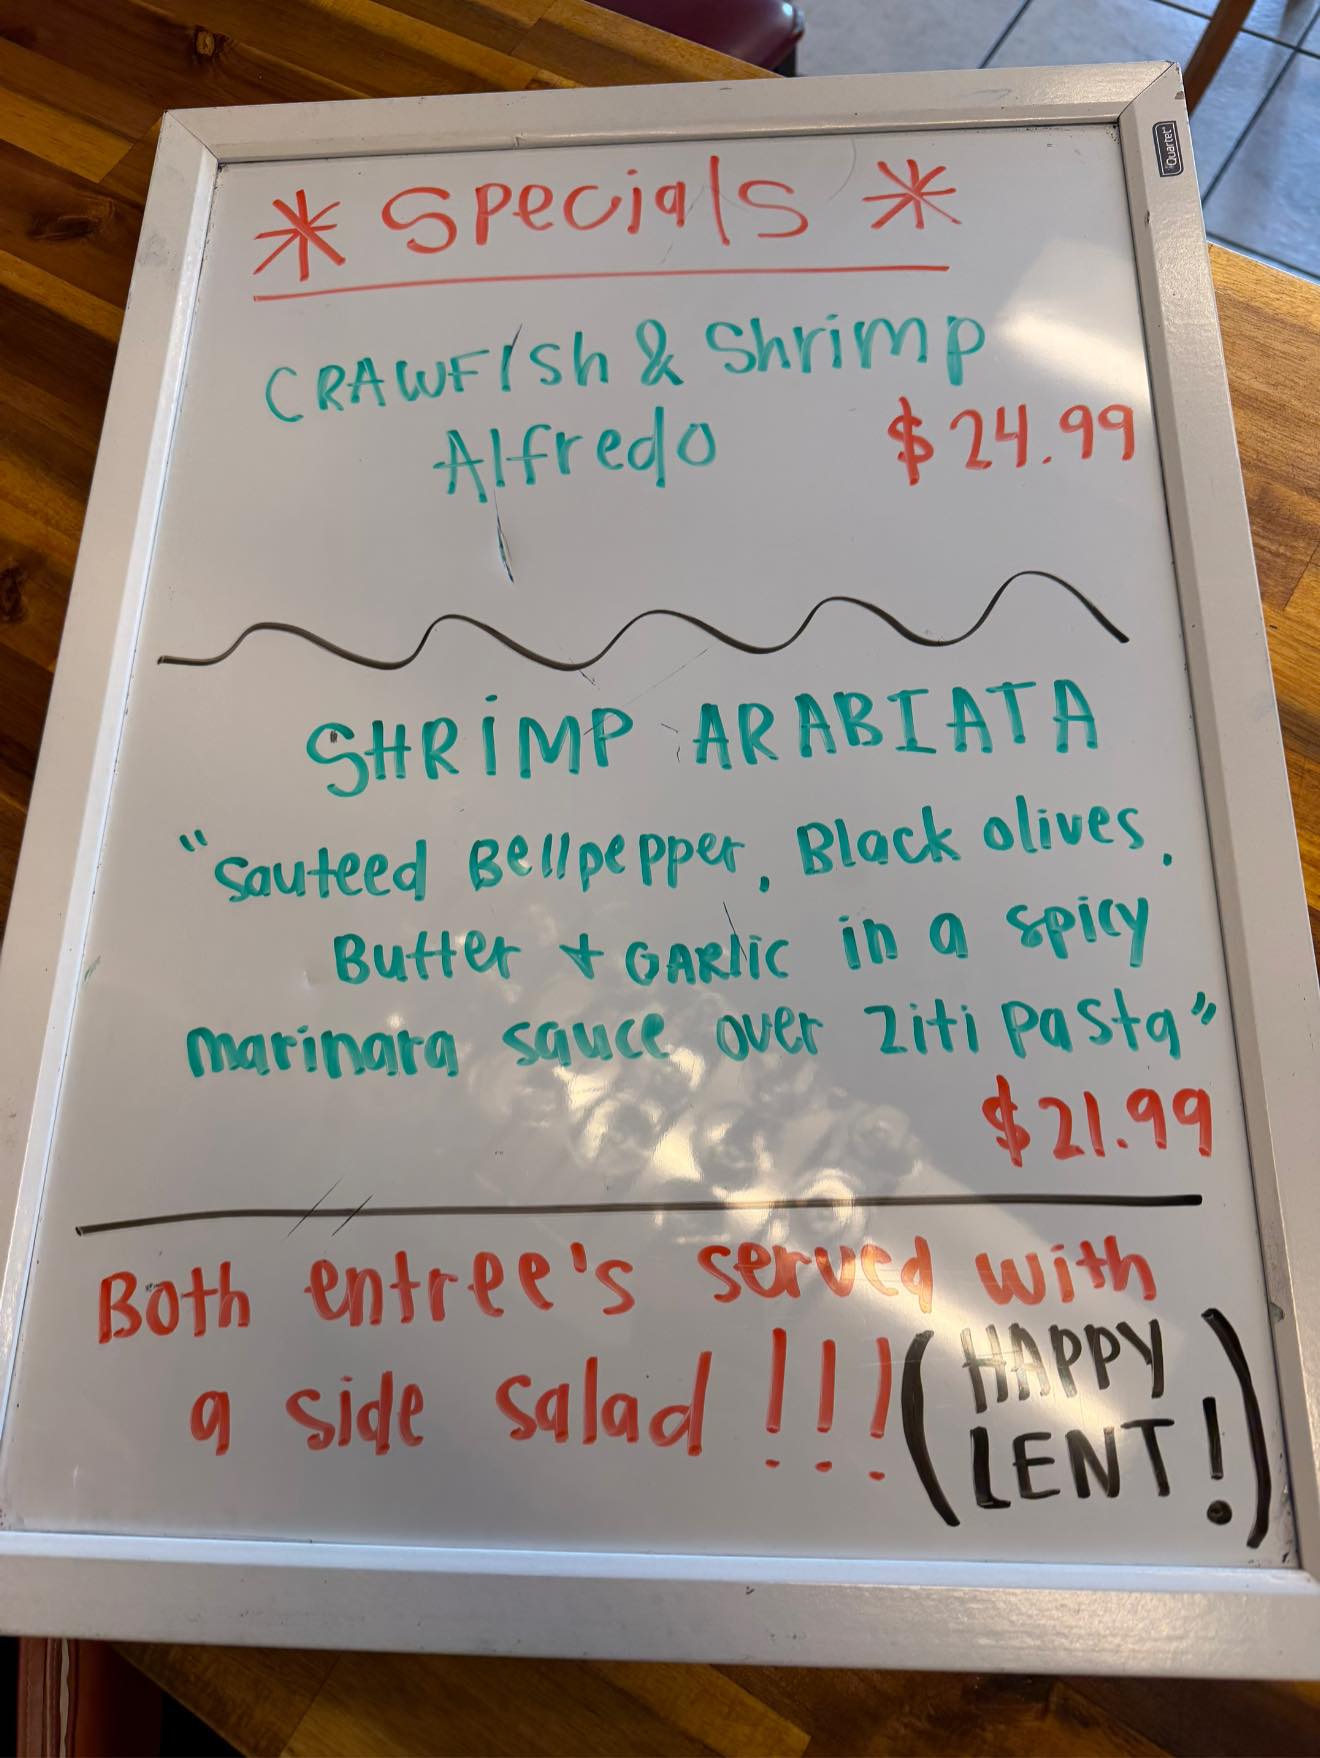 * Specials *
CRAWFISh & Shrimp
Alfredo $24.99
SHRiMP ARABIATA
"Sauteed Bellpepper, Black olives,
Butter + GARlic in a spicy
marinara sauce over Ziti pasta"
$21.99
Both entree's served with
a side salad !!! (HAPPY
LENT!)
Quartet